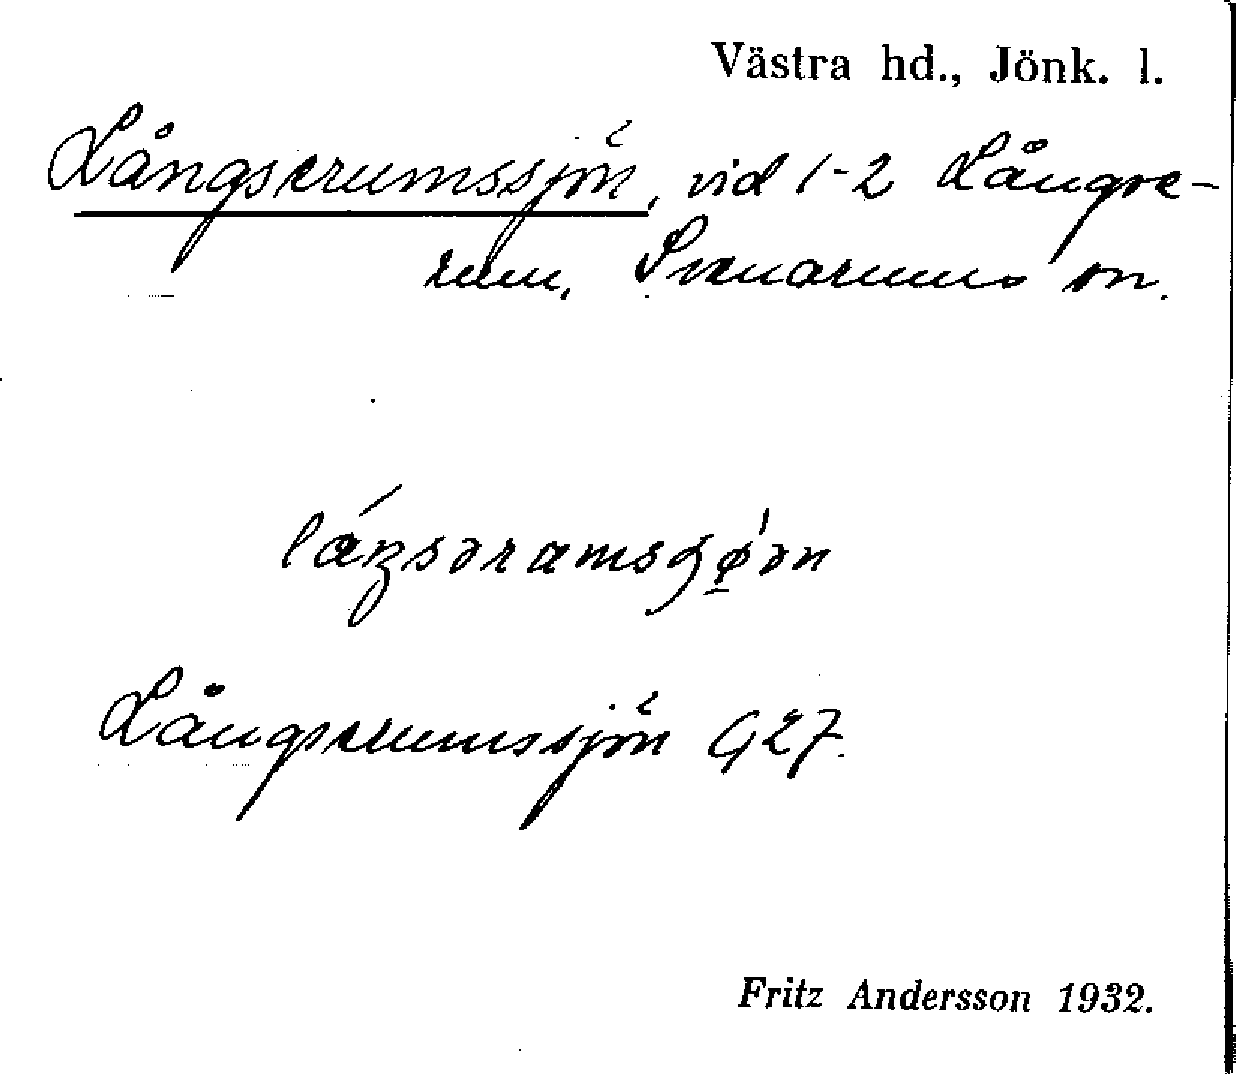 Västra hd., Jönk. l.
Långserumssjön, vid 1-2 Långse-
rum, Svenarums sn.
Långserumssjön G 27.
Fritz Andersson 1932.